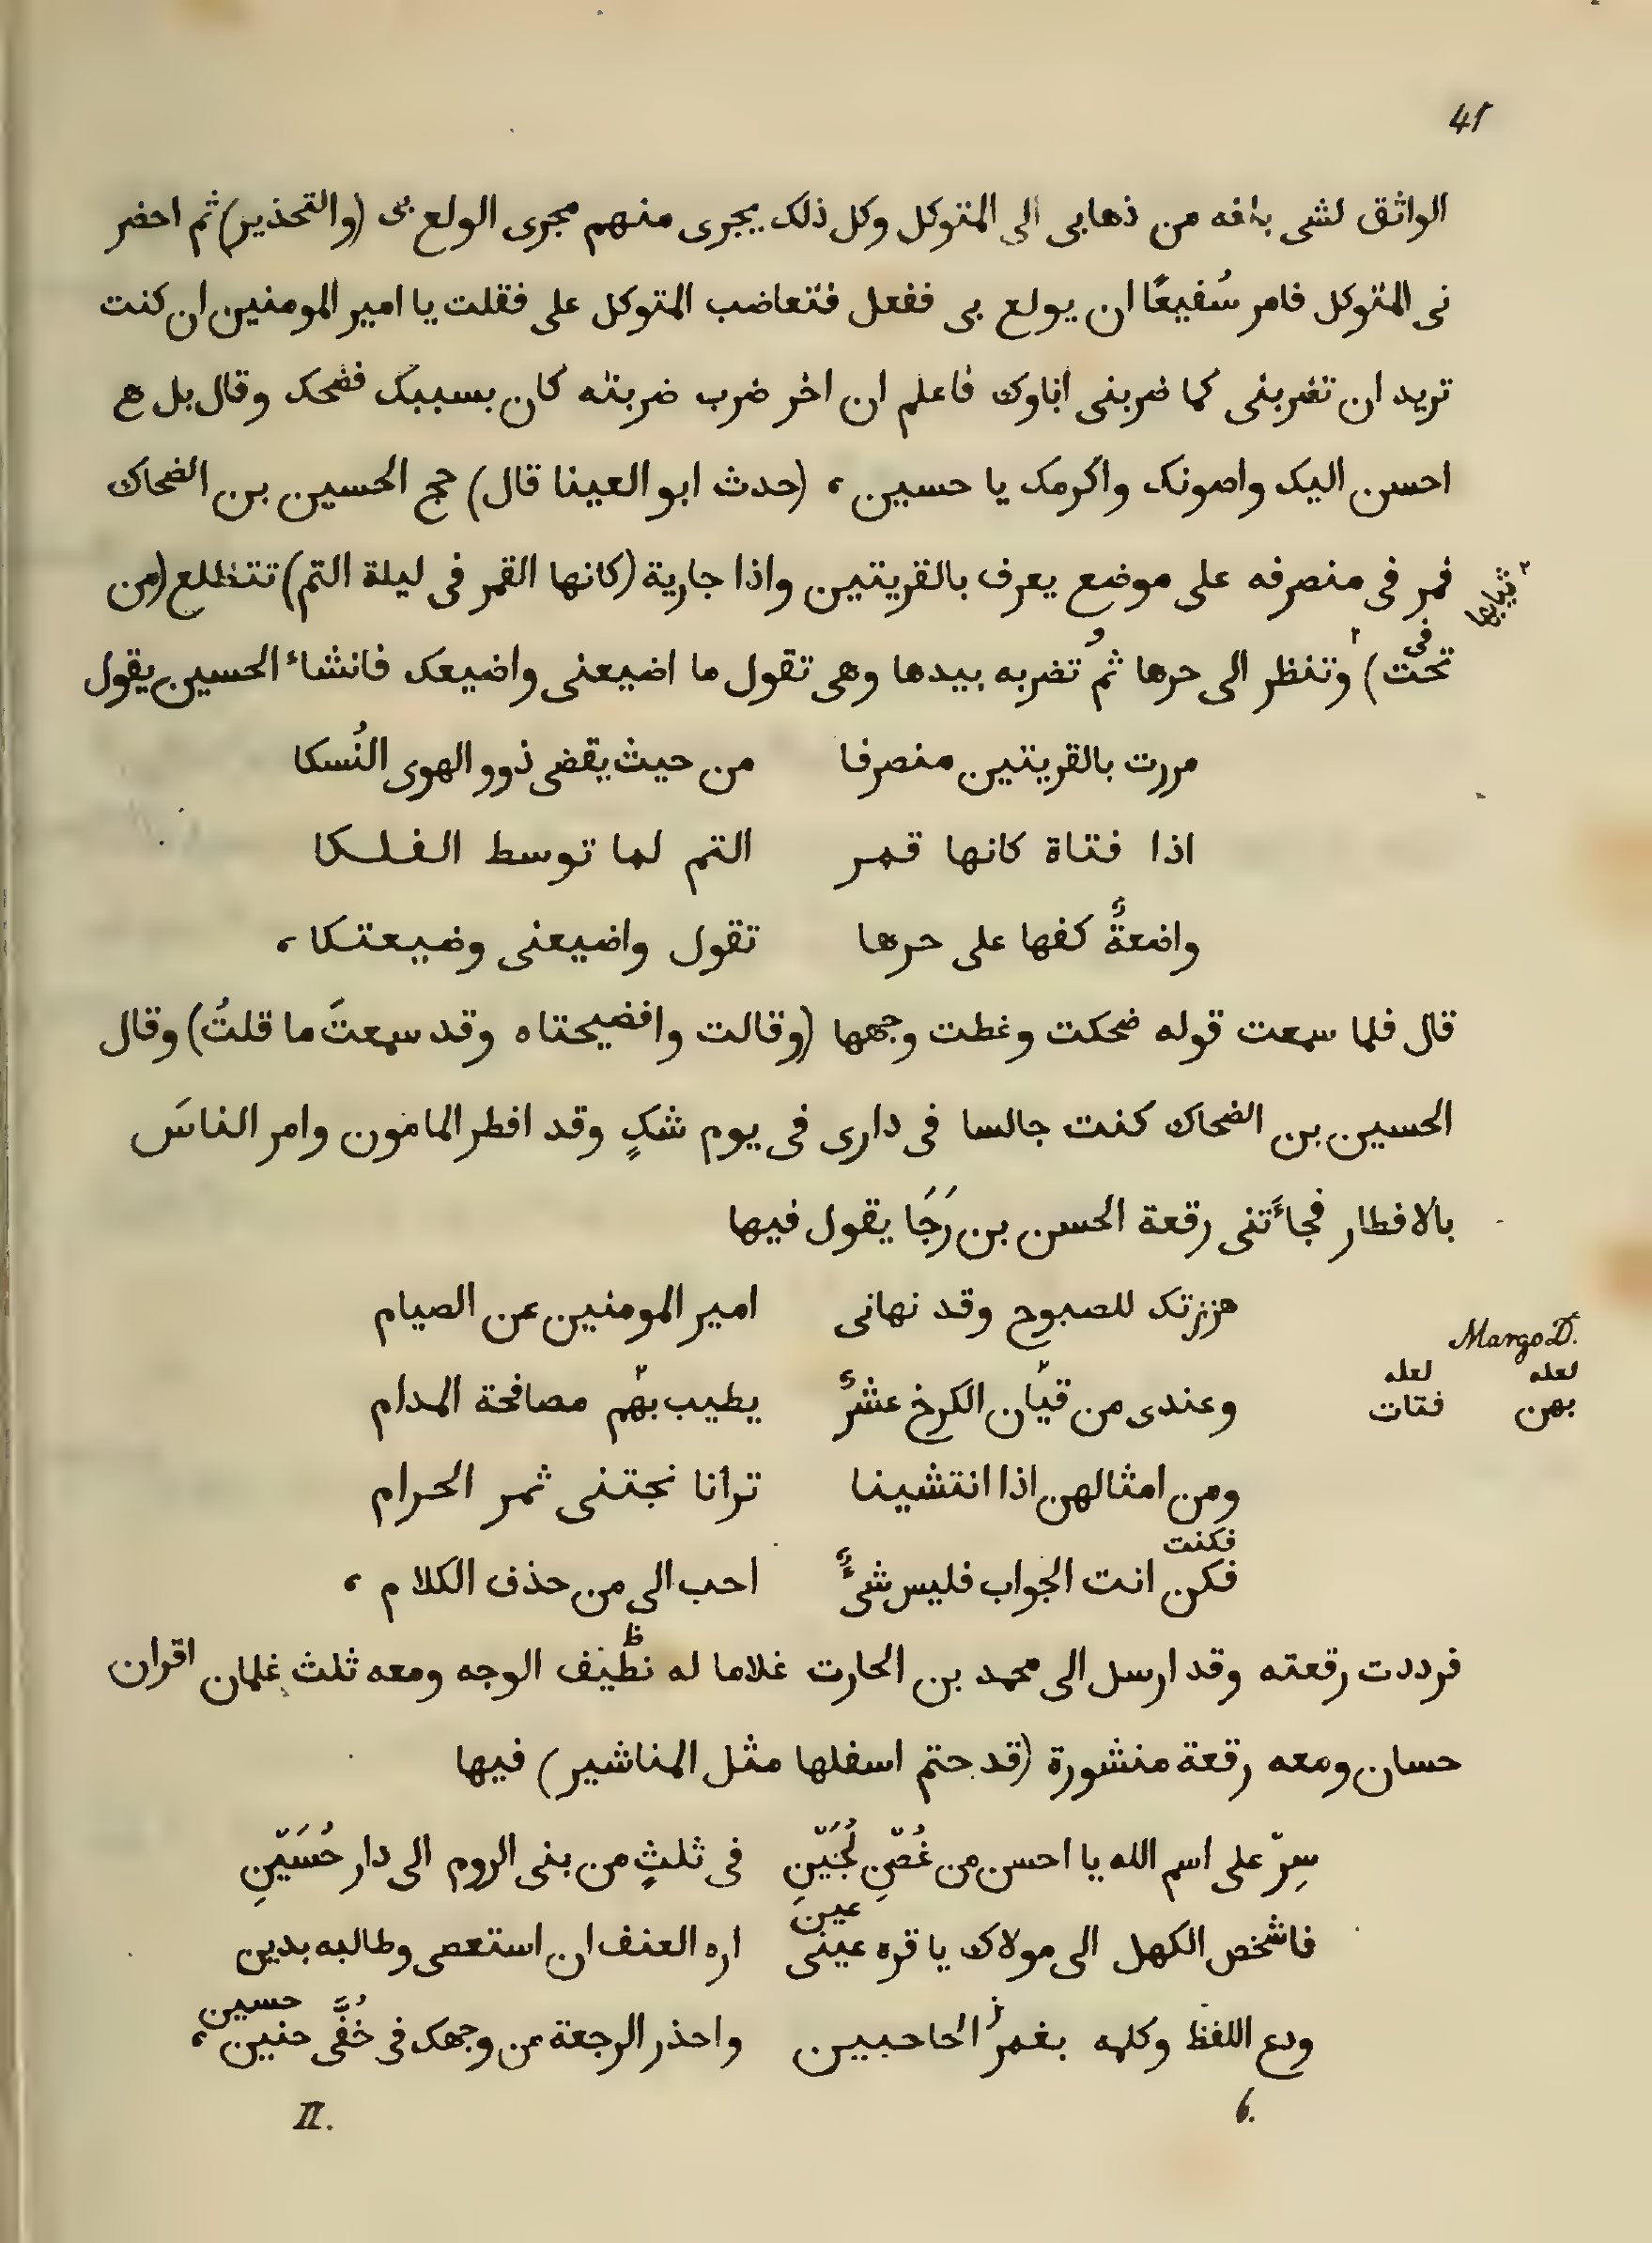 41
الواثق لشى بلغه من ذهابى الى المتوكل وكل ذلك يجرى منهم مجرى الولع بى (والتحذير) ثم احضر
نى المتوكل فامر سُفيعًا ان يولع بى ففعل فتعاضب المتوكل على فقلت يا امير المومنين ان كنت
تريد ان تضربنى كما ضربنى اباوك فاعلم ان اخر ضرب ضربته كان بسببك فضحك وقال بل
احسن اليك واصونك واكرمك يا حسين ، (حدث ابو العينا قال) حج الحسين بن الضحاك
فمر فى منصرفه على موضع يعرف بالقريتين واذا جارية (كانها القمر فى ليلة التم) تتطلع (من
ثيابها
فى
تحت) وتنظر الى حرها ثم تضربه بيدها وهى تقول ما اضيعنى واضيعك فانشاء الحسين يقول
مررت بالقريتين منصرفا من حيث يقضى ذوو الهوى النُسكا
اذا فتاة كانها قمر التم لما توسط الفلكا
واضعةٌ كفها على حرها تقول واضيعنى وضيعتكا ،
قال فلما سمعت قوله ضحكت وغطت وجهها (وقالت وافضيحتاه وقد سمعتَ ما قلتُ) وقال
الحسين بن الضحاك كنت جالسا فى دارى فى يوم شكٍ وقد افطر المامون وامر الناسَ
بالافطار فجاءَتنى رقعة الحسن بن رَجَا يقول فيها
هززتك للصبوح وقد نهانى امير المومنين عن الصيام
Margo D.
لعله لعله
بهن فتات
وعندى من قيان الكرخ عشرٌ يطيب بهم مصافحة المدام
ومن امثالهن اذا انتشينا ترانا نجتنى ثمر الحرام
فكنت
فكن انت الجواب فليس شىءٌ احب الى من حذف الكلام ،
ظ
فرددت رقعته وقد ارسل الى محمد بن الحارت غلاما له نظيف الوجه ومعه ثلث غلمان اقران
حسان ومعه رقعة منشورة (قد حتم اسفلها مثل المناشير) فيها
سِرّ على اسم الله يا احسن من غُصّنِ لُجَيّنِ فى ثلثٍ من بنى الروم الى دار حُسَيّنِ
عينَ
فاشخص الكهل الى مولاك يا قره عينى اره العنف ان استعصى وطالبه بدين
حسين
ودع اللفظ وكلمه بغمز الحاحبين واحذر الرجعة من وجهك فى خُفَّى حنين ،
II. 6.